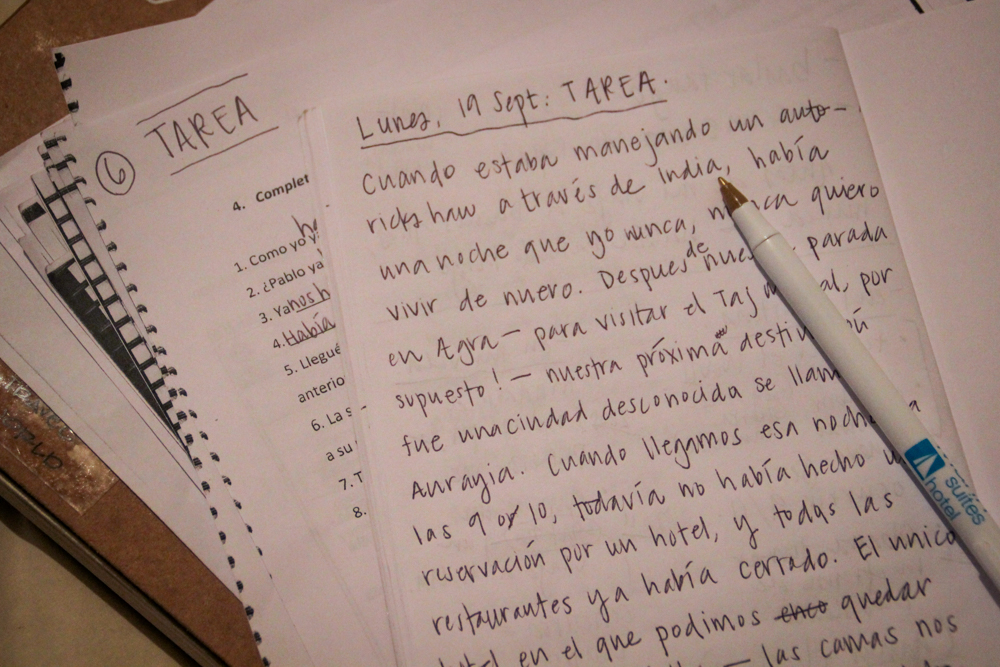 6
TAREA
4. Complet
1. Como yo y
2. ¿Pablo ya
3. Ya nos h
4. Había
5. Llegué
anterio
6. La s
a su
7. T
8.
Lunes, 19 Sept: TAREA.
Cuando estaba manejando un auto-
rickshaw a través de India, había
una noche que yo nunca, nunca quiero
vivir de nuevo. Despues de parada
en Agra — para visitar el Taj al, por
supuesto! — nuestra próxima
fue una ciudad desconocida se
Aurayia. Cuando llegamos esa noche
las 9 o 10, todavía no había hecho
reservación por un hotel, y todas las
restaurantes ya había cerrado. El unico
en el que podimos quedar
— las camas nos
suites
hotel